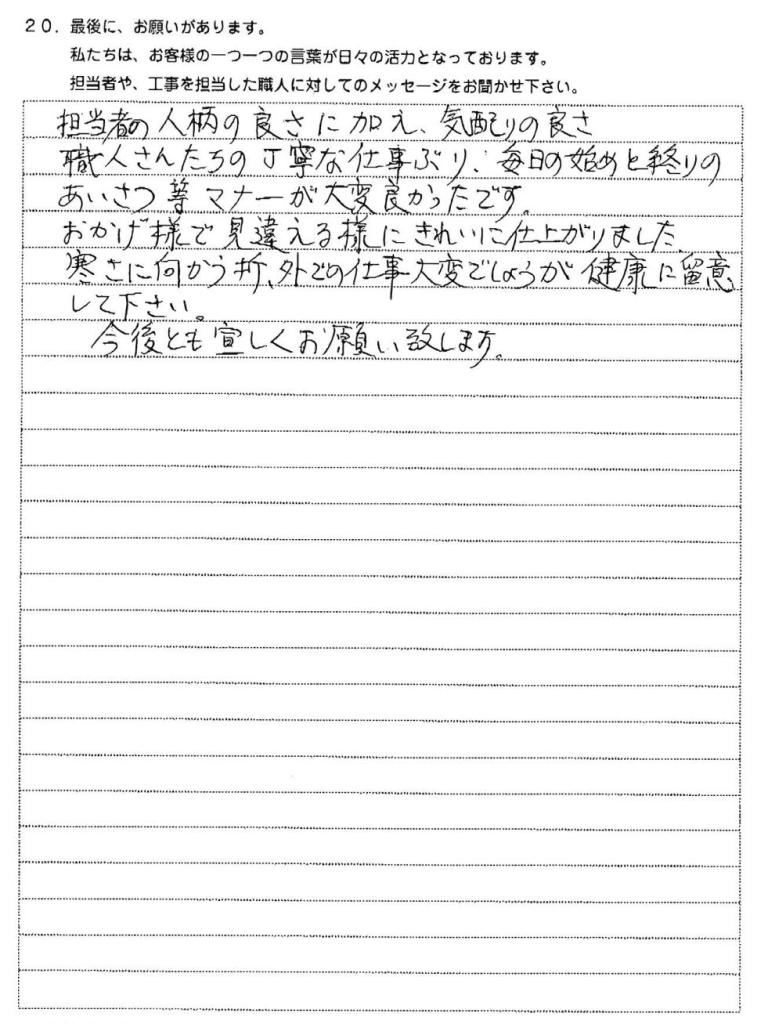 20. 最後に、お願いがあります。
私たちは、お客様の一つ一つの言葉が日々の活力となっております。
担当者や、工事を担当した職人に対してのメッセージをお聞かせ下さい。
担当者の人柄の良さに加え、気配りの良さ
職人さんたちの丁寧な仕事ぶり、毎日の始めと終りの
あいさつ等マナーが大変良かったです。
おかげ様で見違える様にきれいに仕上がりました。
寒さに向かう折、外での仕事大変でしょうが健康に留意
して下さい。
今後とも宜しくお願い致します。